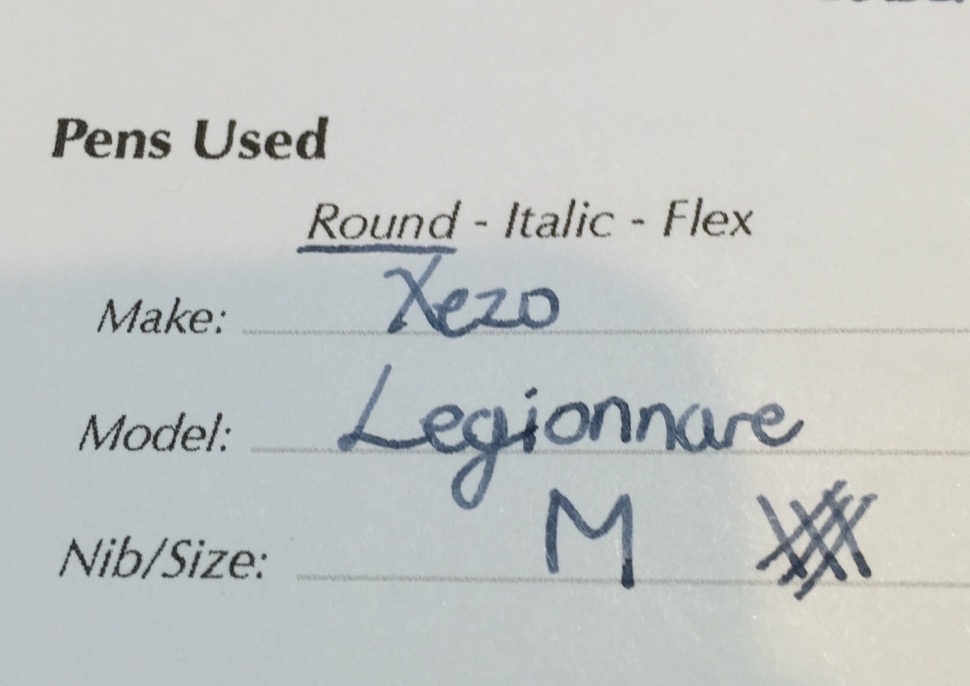 Pens Used
Round - Italic - Flex
Make: Xezo
Model: Legionnare
Nib/Size: M